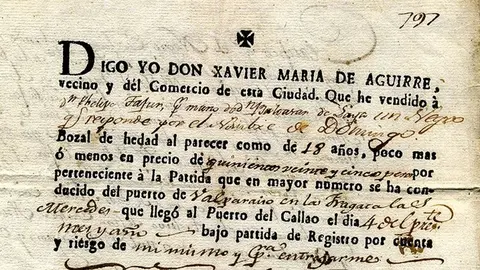 797
DIGO YO DON XAVIER MARIA DE AGUIRRE,
vecino y del Comercio de esta Ciudad. Que he vendido à
dn Phelipe y mano de dn Baltazar de un Negro
q responde por el Nombre de Domingo
Bozal de hedad al parecer como de 18 años, poco mas
ó menos en precio de quinientos veinte y cinco pesos por
perteneciente à la Partida que en mayor numero se ha con-
ducido del puerto de Valparaiso en la Fragata las
Mercedes que llegó al Puerto del Callao el dia 4 del pte
mes y año bajo partida de Registro por cuenta
y riesgo de mi mismo y pa entregarme